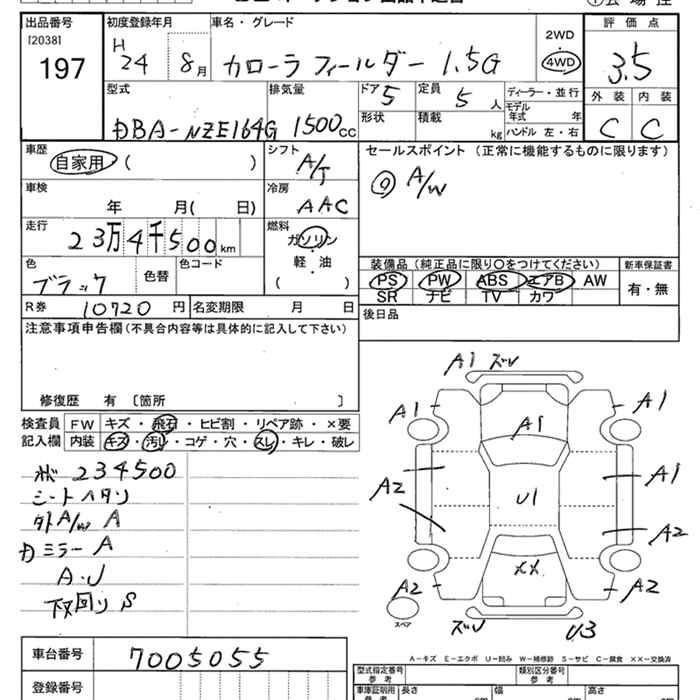 出品番号 初度登録年月 車名・グレード 評価点
[2038]
197
H24 8月 カローラフィールダー 1.5G
2WD
4WD
3.5
型式 排気量 ドア 定員 ディーラー・並行 外装 内装
DBA-NZE164G 1500cc 5 5人
形状 積載 kg
モデル年式 年
ハンドル 左・右
C C
車歴 自家用 ( )
シフト A/T
セールスポイント (正常に機能するものに限ります)
A/W
車検 年 月( 日)
冷房 AAC
走行 23万4千500km
燃料 ガソリン
軽・油
( )
色 ブラック 色替 色コード
装備品 (純正品に限り〇をつけてください) 新車保証書
PS PW ABS エアB AW
SR ナビ TV カワ
有・無
R券 10720円 名変期限 月 日
後日品
注意事項申告欄(不具合内容等は具体的に記入して下さい)
修復歴 有 〔箇所 〕
検査員 FW キズ・飛石・ヒビ割・リペア跡・×要
記入欄 内装 キズ・汚レ・コゲ・穴・スレ・キレ・破レ
234500
シートヘタリ
外A/W A
ミラー A
A・U
下回り S
A1 ズレ
A1 A1 A1
A2 U1 A1
A2
A2 XX A2
スペア ズレ U3
A-キズ E-エクボ U-凹み W-補修跡 S-サビ C-腐食 ××-交換済
車台番号 7005055
型式指定番号 参考 類別区分番号 参考
登録番号
車庫証明用 参考 長さ cm 幅 cm 高さ cm